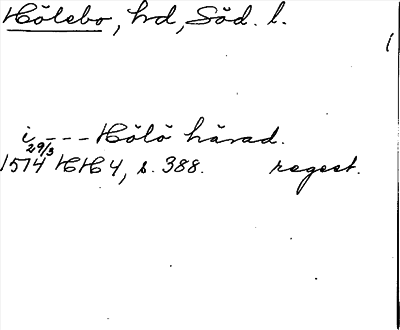 Hölebo, hd, Söd. l.
1
i --- Hölö härad.
29/3
1514 HH 4, s. 388. regest.